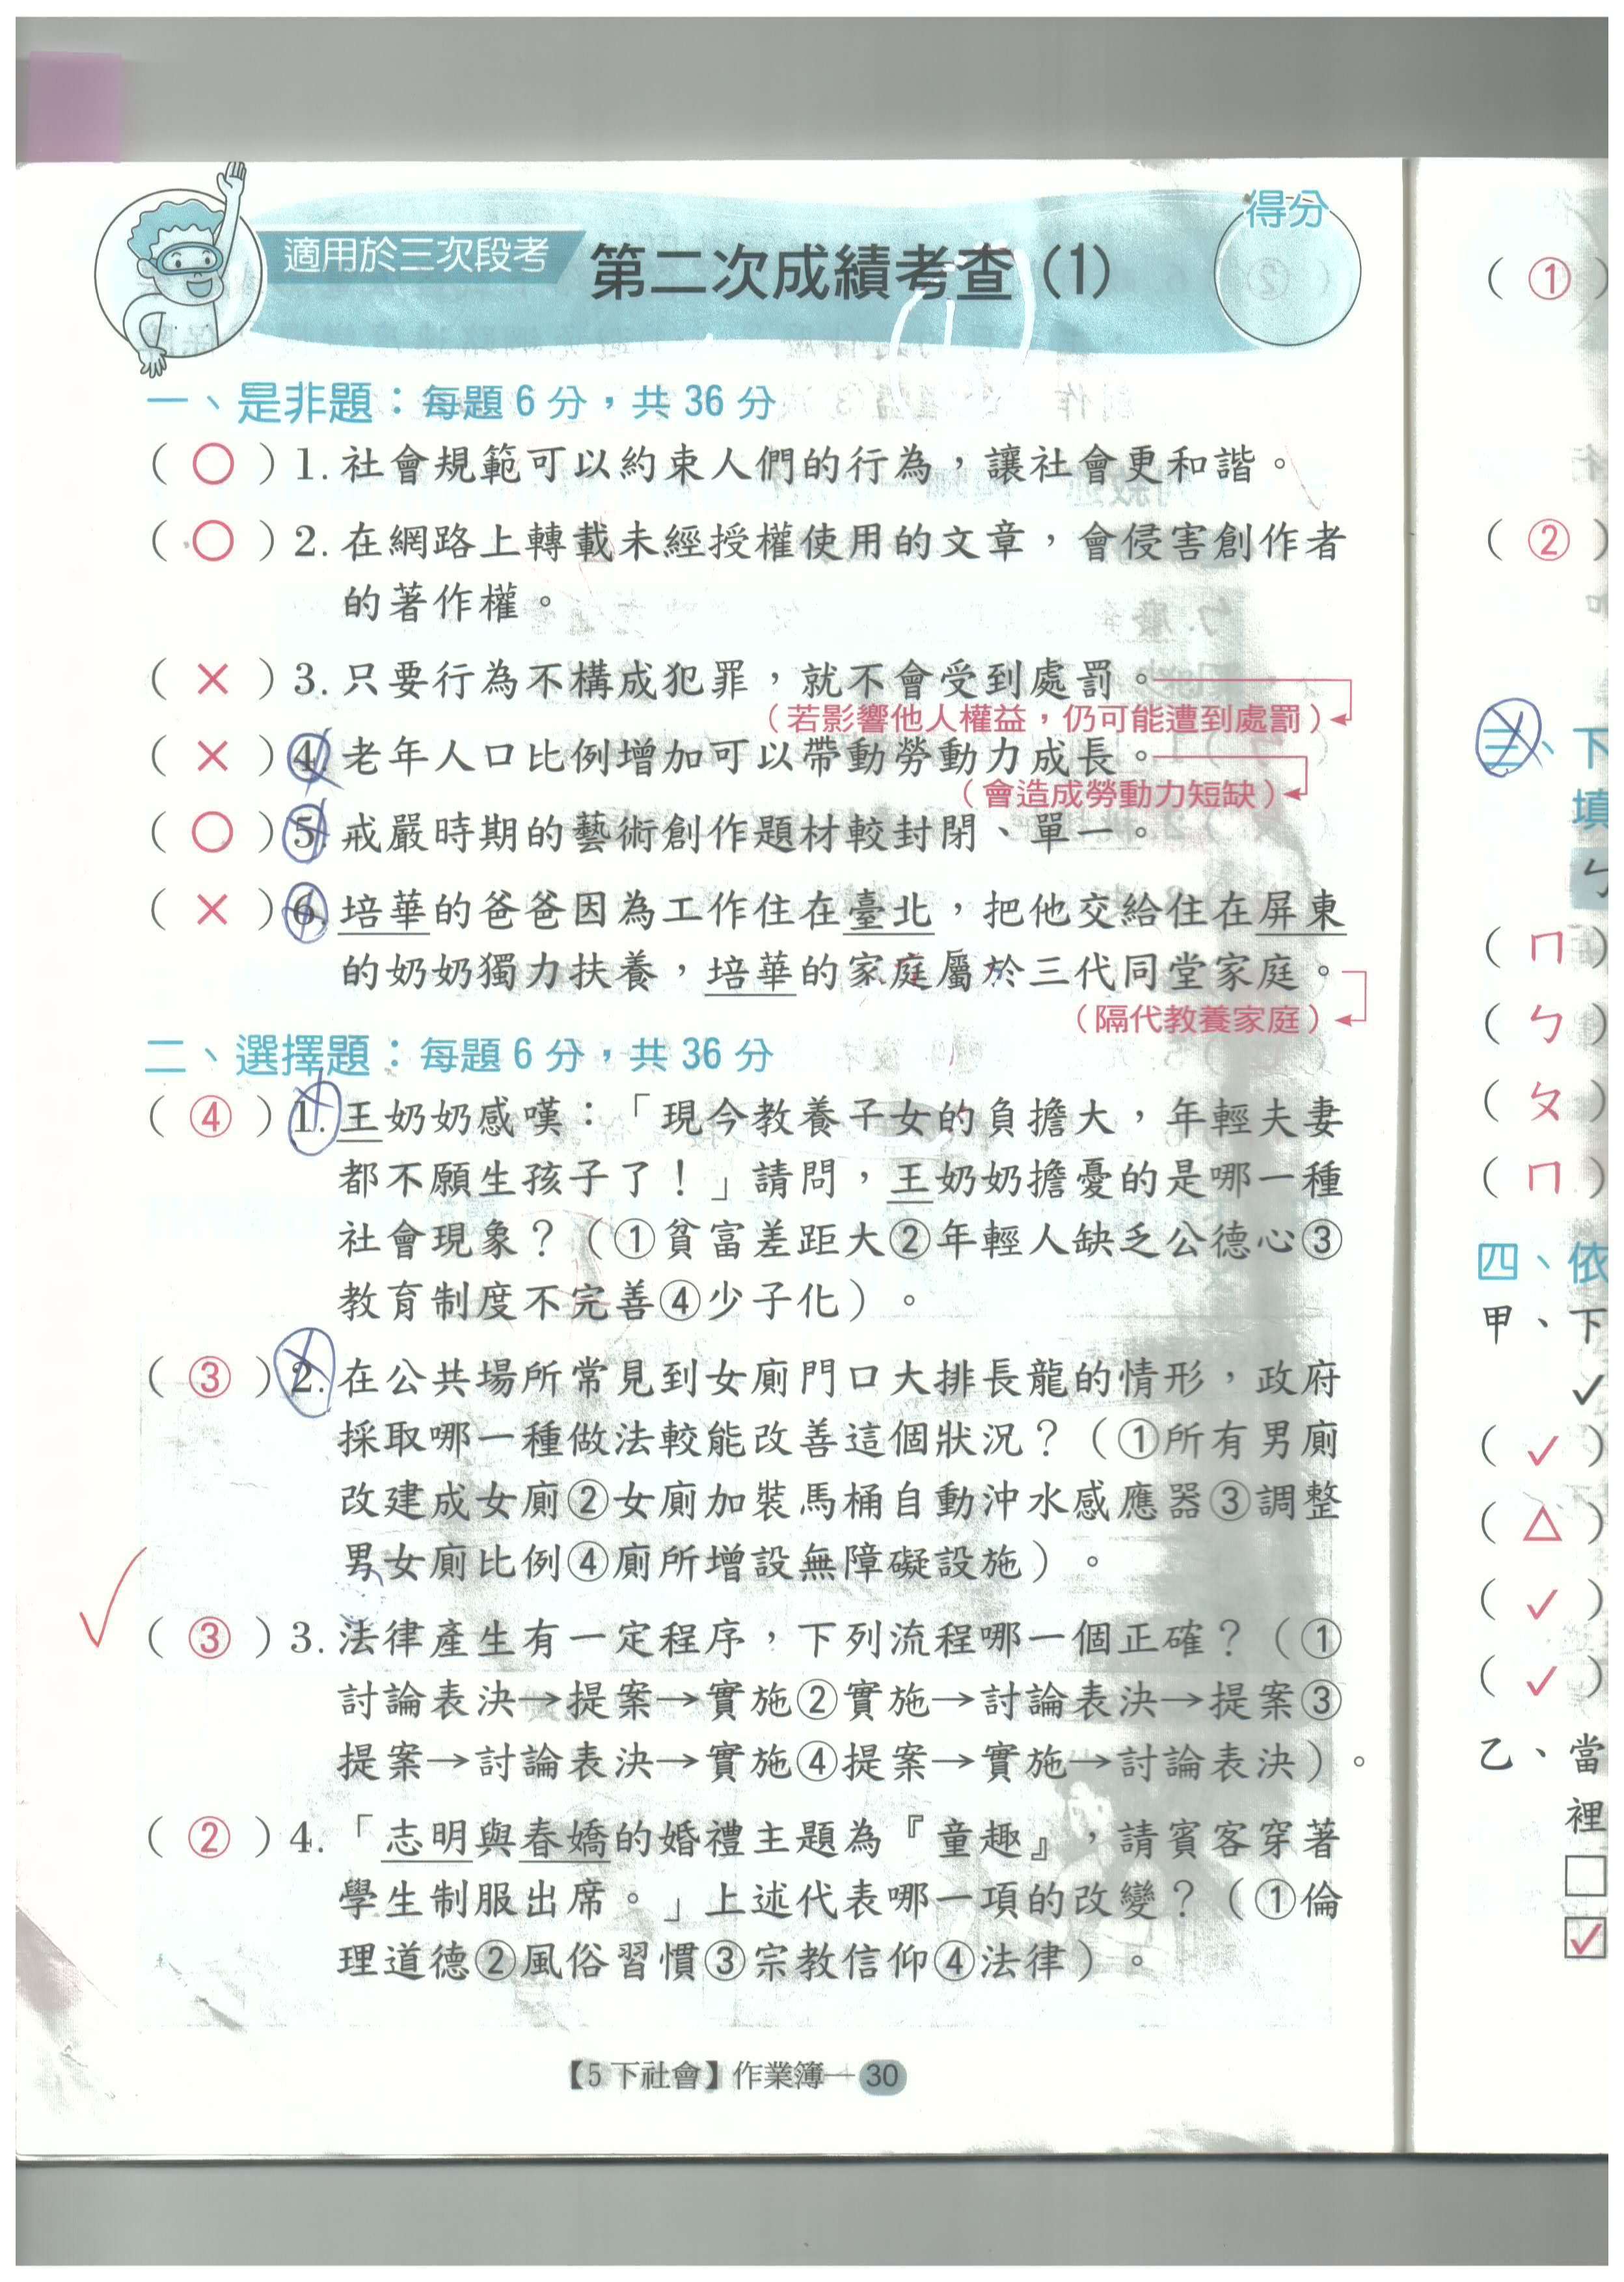 得分
適用於三次段考 第二次成績考查(1)
一、是非題：每題6分，共36分
( ○ )1.社會規範可以約束人們的行為，讓社會更和諧。
( ○ )2.在網路上轉載未經授權使用的文章，會侵害創作者
的著作權。
( × )3.只要行為不構成犯罪，就不會受到處罰。
(若影響他人權益，仍可能遭到處罰)
( × )4.老年人口比例增加可以帶動勞動力成長。
(會造成勞動力短缺)
( ○ )5.戒嚴時期的藝術創作題材較封閉、單一。
( × )6.培華的爸爸因為工作住在臺北，把他交給住在屏東
的奶奶獨力扶養，培華的家庭屬於三代同堂家庭。
(隔代教養家庭)
二、選擇題：每題6分，共36分
( ④ )1.王奶奶感嘆：「現今教養子女的負擔大，年輕夫妻
都不願生孩子了！」請問，王奶奶擔憂的是哪一種
社會現象？(①貧富差距大②年輕人缺乏公德心③
教育制度不完善④少子化)。
( ③ )2.在公共場所常見到女廁門口大排長龍的情形，政府
採取哪一種做法較能改善這個狀況？(①所有男廁
改建成女廁②女廁加裝馬桶自動沖水感應器③調整
男女廁比例④廁所增設無障礙設施)。
( ③ )3.法律產生有一定程序，下列流程哪一個正確？(①
討論表決→提案→實施②實施→討論表決→提案③
提案→討論表決→實施④提案→實施→討論表決)。
( ② )4.「志明與春嬌的婚禮主題為『童趣』，請賓客穿著
學生制服出席。」上述代表哪一項的改變？(①倫
理道德②風俗習慣③宗教信仰④法律)。
【5下社會】作業簿—30
( ① )
( ② )
三、下
填
ㄅ
( ㄇ )
( ㄅ )
( ㄆ )
( ㄇ )
四、依
甲、下
✓
( ✓ )
( △ )
( ✓ )
( ✓ )
乙、當
裡
□
☑